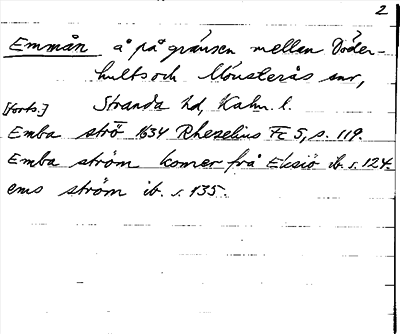 2
Emmån å på gränsen mellan Döder-
hults och Mönsterås snr,
[forts.] Stranda hd, Kalm. l.
Emba strö 1634 Rhezelius Fc 5, s. 119.
Emba ström komer frå Eksiö ib. s. 124.
ems ström ib. s. 135.